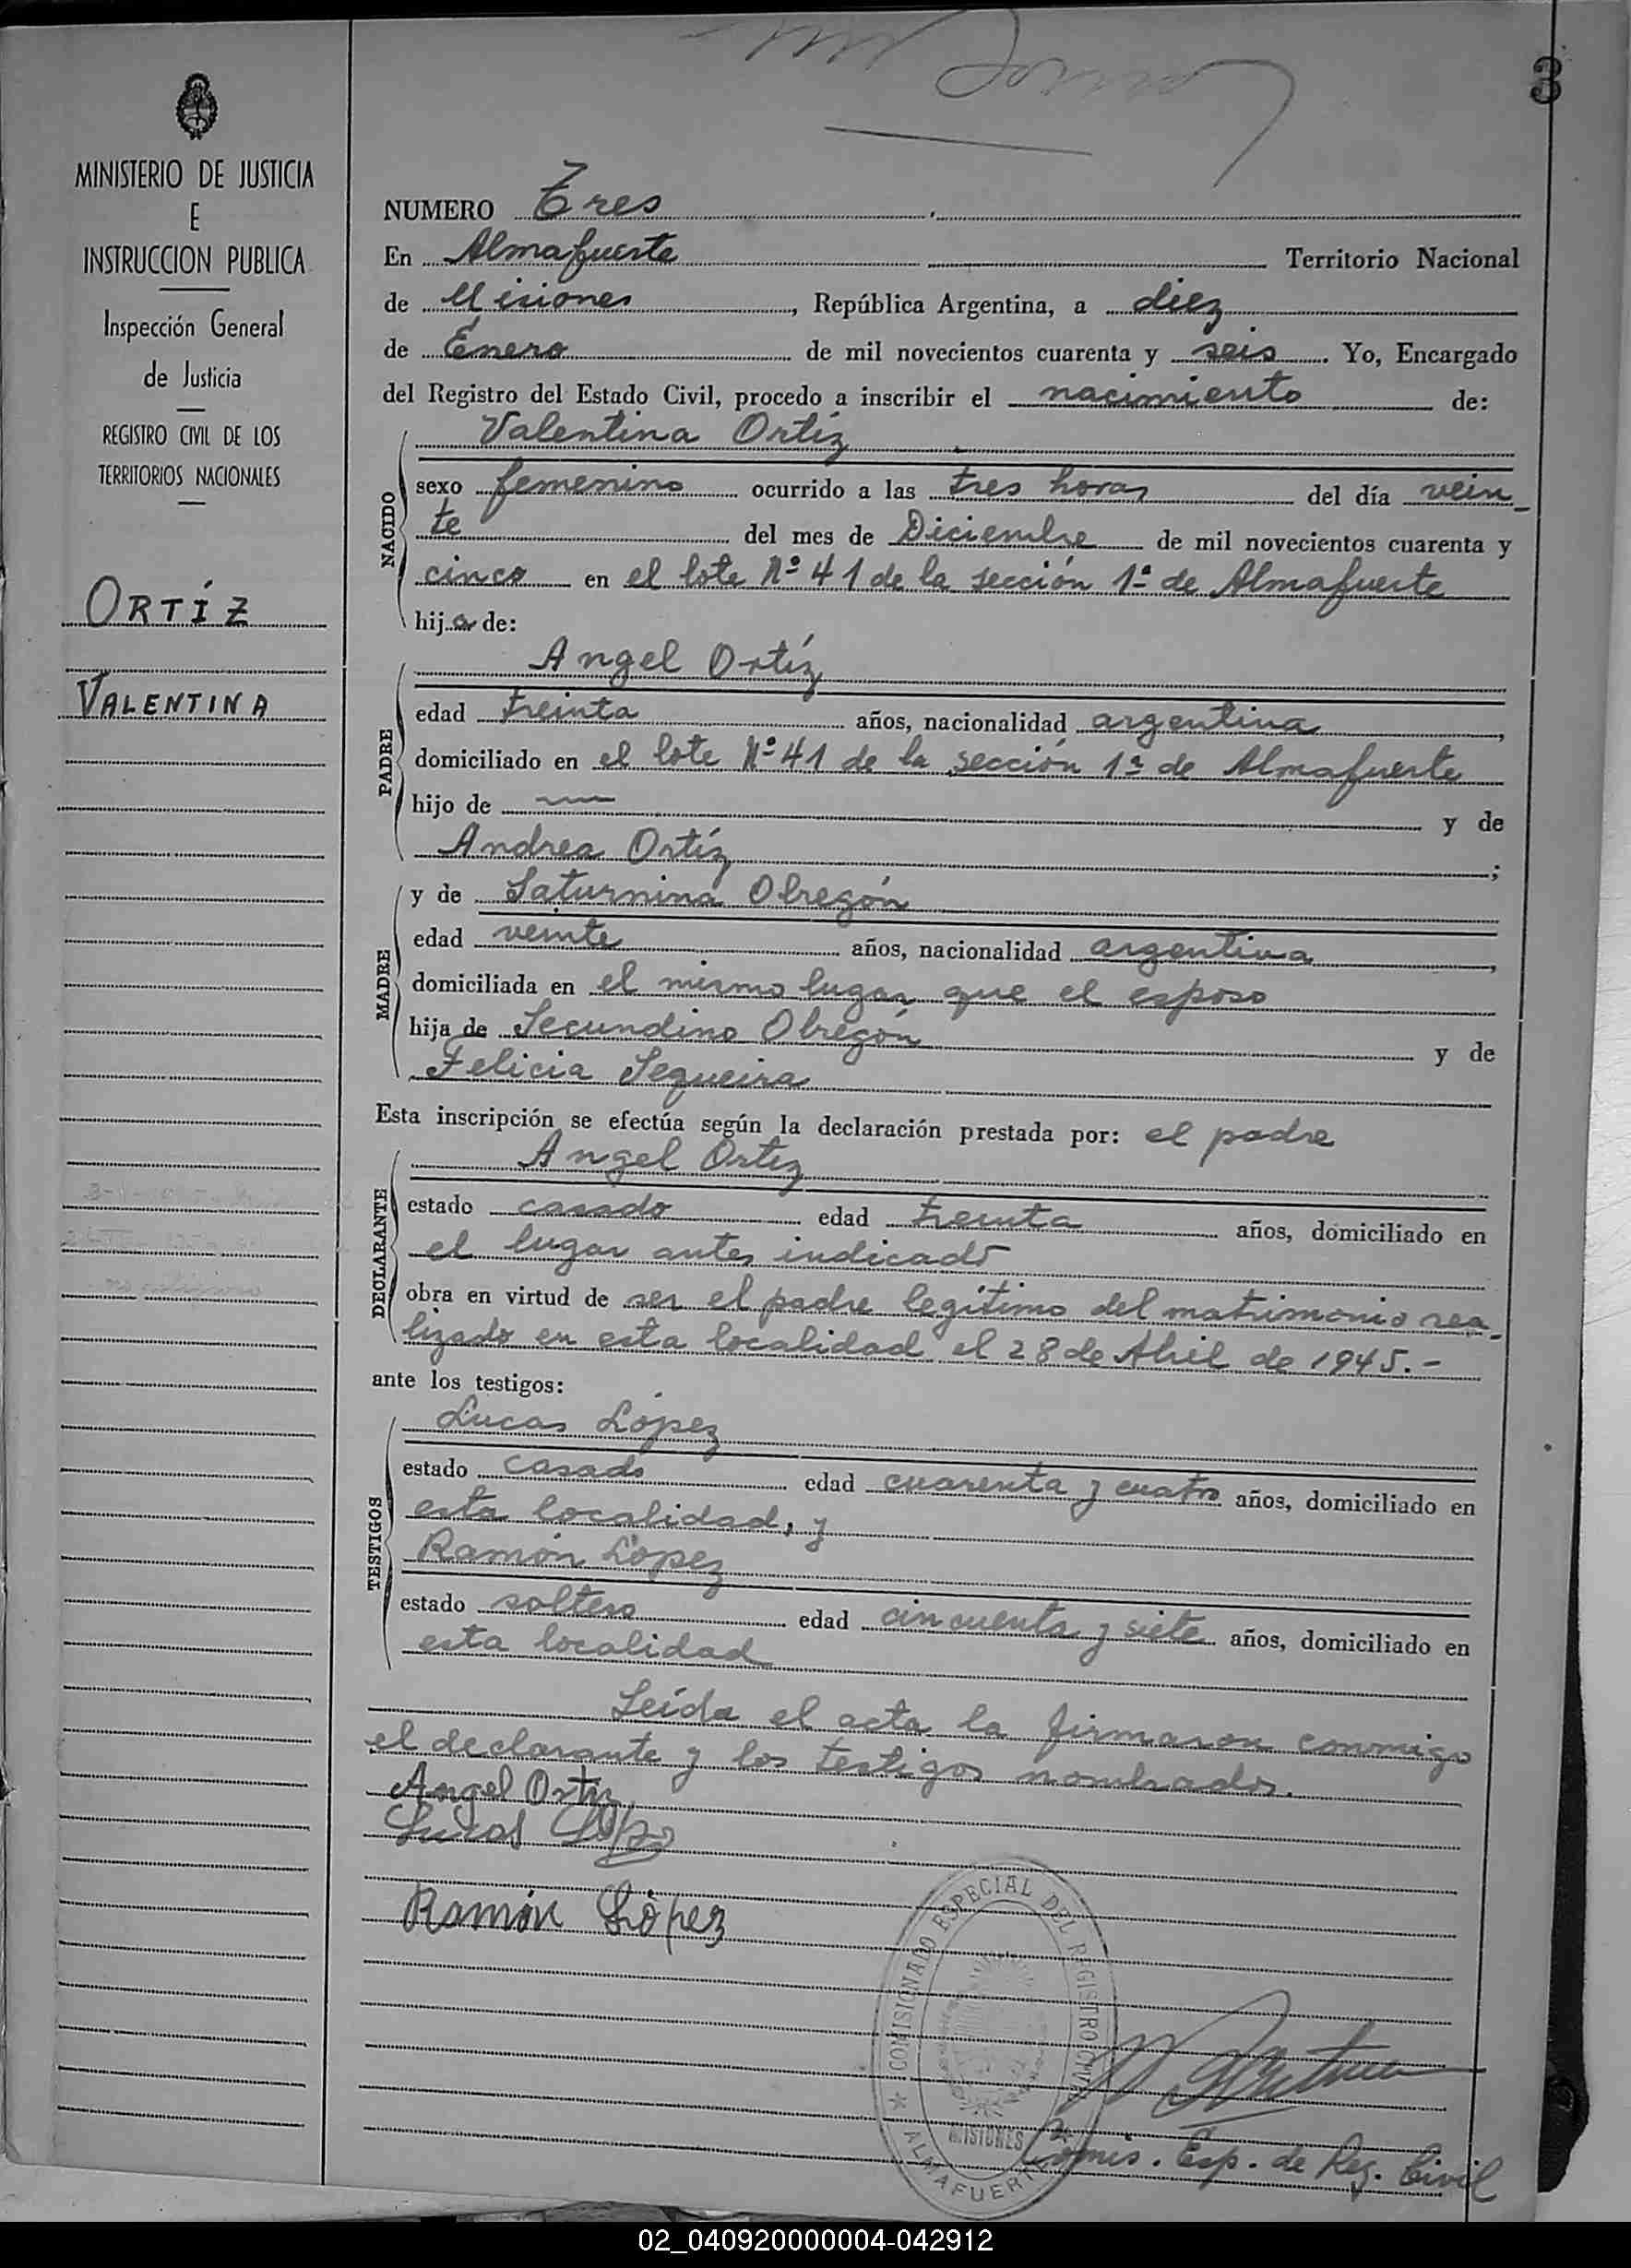 3
MINISTERIO DE JUSTICIA
E
INSTRUCCION PUBLICA
Inspección General
de Justicia
REGISTRO CIVIL DE LOS
TERRITORIOS NACIONALES
ORTÍZ
VALENTINA
NUMERO Tres
En Almafuerte Territorio Nacional
de Misiones, República Argentina, a diez
de Enero de mil novecientos cuarenta y seis. Yo, Encargado
del Registro del Estado Civil, procedo a inscribir el nacimiento de:
NACIDO
Valentina Ortíz
sexo femenino ocurrido a las tres horas del día vein_
te del mes de Diciembre de mil novecientos cuarenta y
cinco en el lote Nº 41 de la sección 1ª de Almafuerte
hija de:
PADRE
Angel Ortíz
edad treinta años, nacionalidad argentina,
domiciliado en el lote Nº 41 de la sección 1ª de Almafuerte
hijo de y de
Andrea Ortíz;
MADRE
y de Saturnina Obregón
edad veinte años, nacionalidad argentina,
domiciliada en el mismo lugar que el esposo
hija de Secundino Obregón y de
Felicia Sequeira
Esta inscripción se efectúa según la declaración prestada por: el padre
DECLARANTE
Angel Ortiz
estado casado edad treinta años, domiciliado en
el lugar antes indicado
obra en virtud de ser el padre legítimo del matrimonio rea_
lizado en esta localidad el 28 de Abril de 1945.-
ante los testigos:
TESTIGOS
Lucas López
estado casado edad cuarenta y cuatro años, domiciliado en
esta localidad, y
Ramón López
estado soltero edad cincuenta y siete años, domiciliado en
esta localidad
Leída el acta la firmaron conmigo
el declarante y los testigos nombrados.
Angel Ortiz
Lucas López
Ramón López
COMISIONADO ESPECIAL DEL REGISTRO CIVIL
MISIONES
ALMAFUERTE
Comis. Esp. de Reg. Civil
02_040920000004-042912